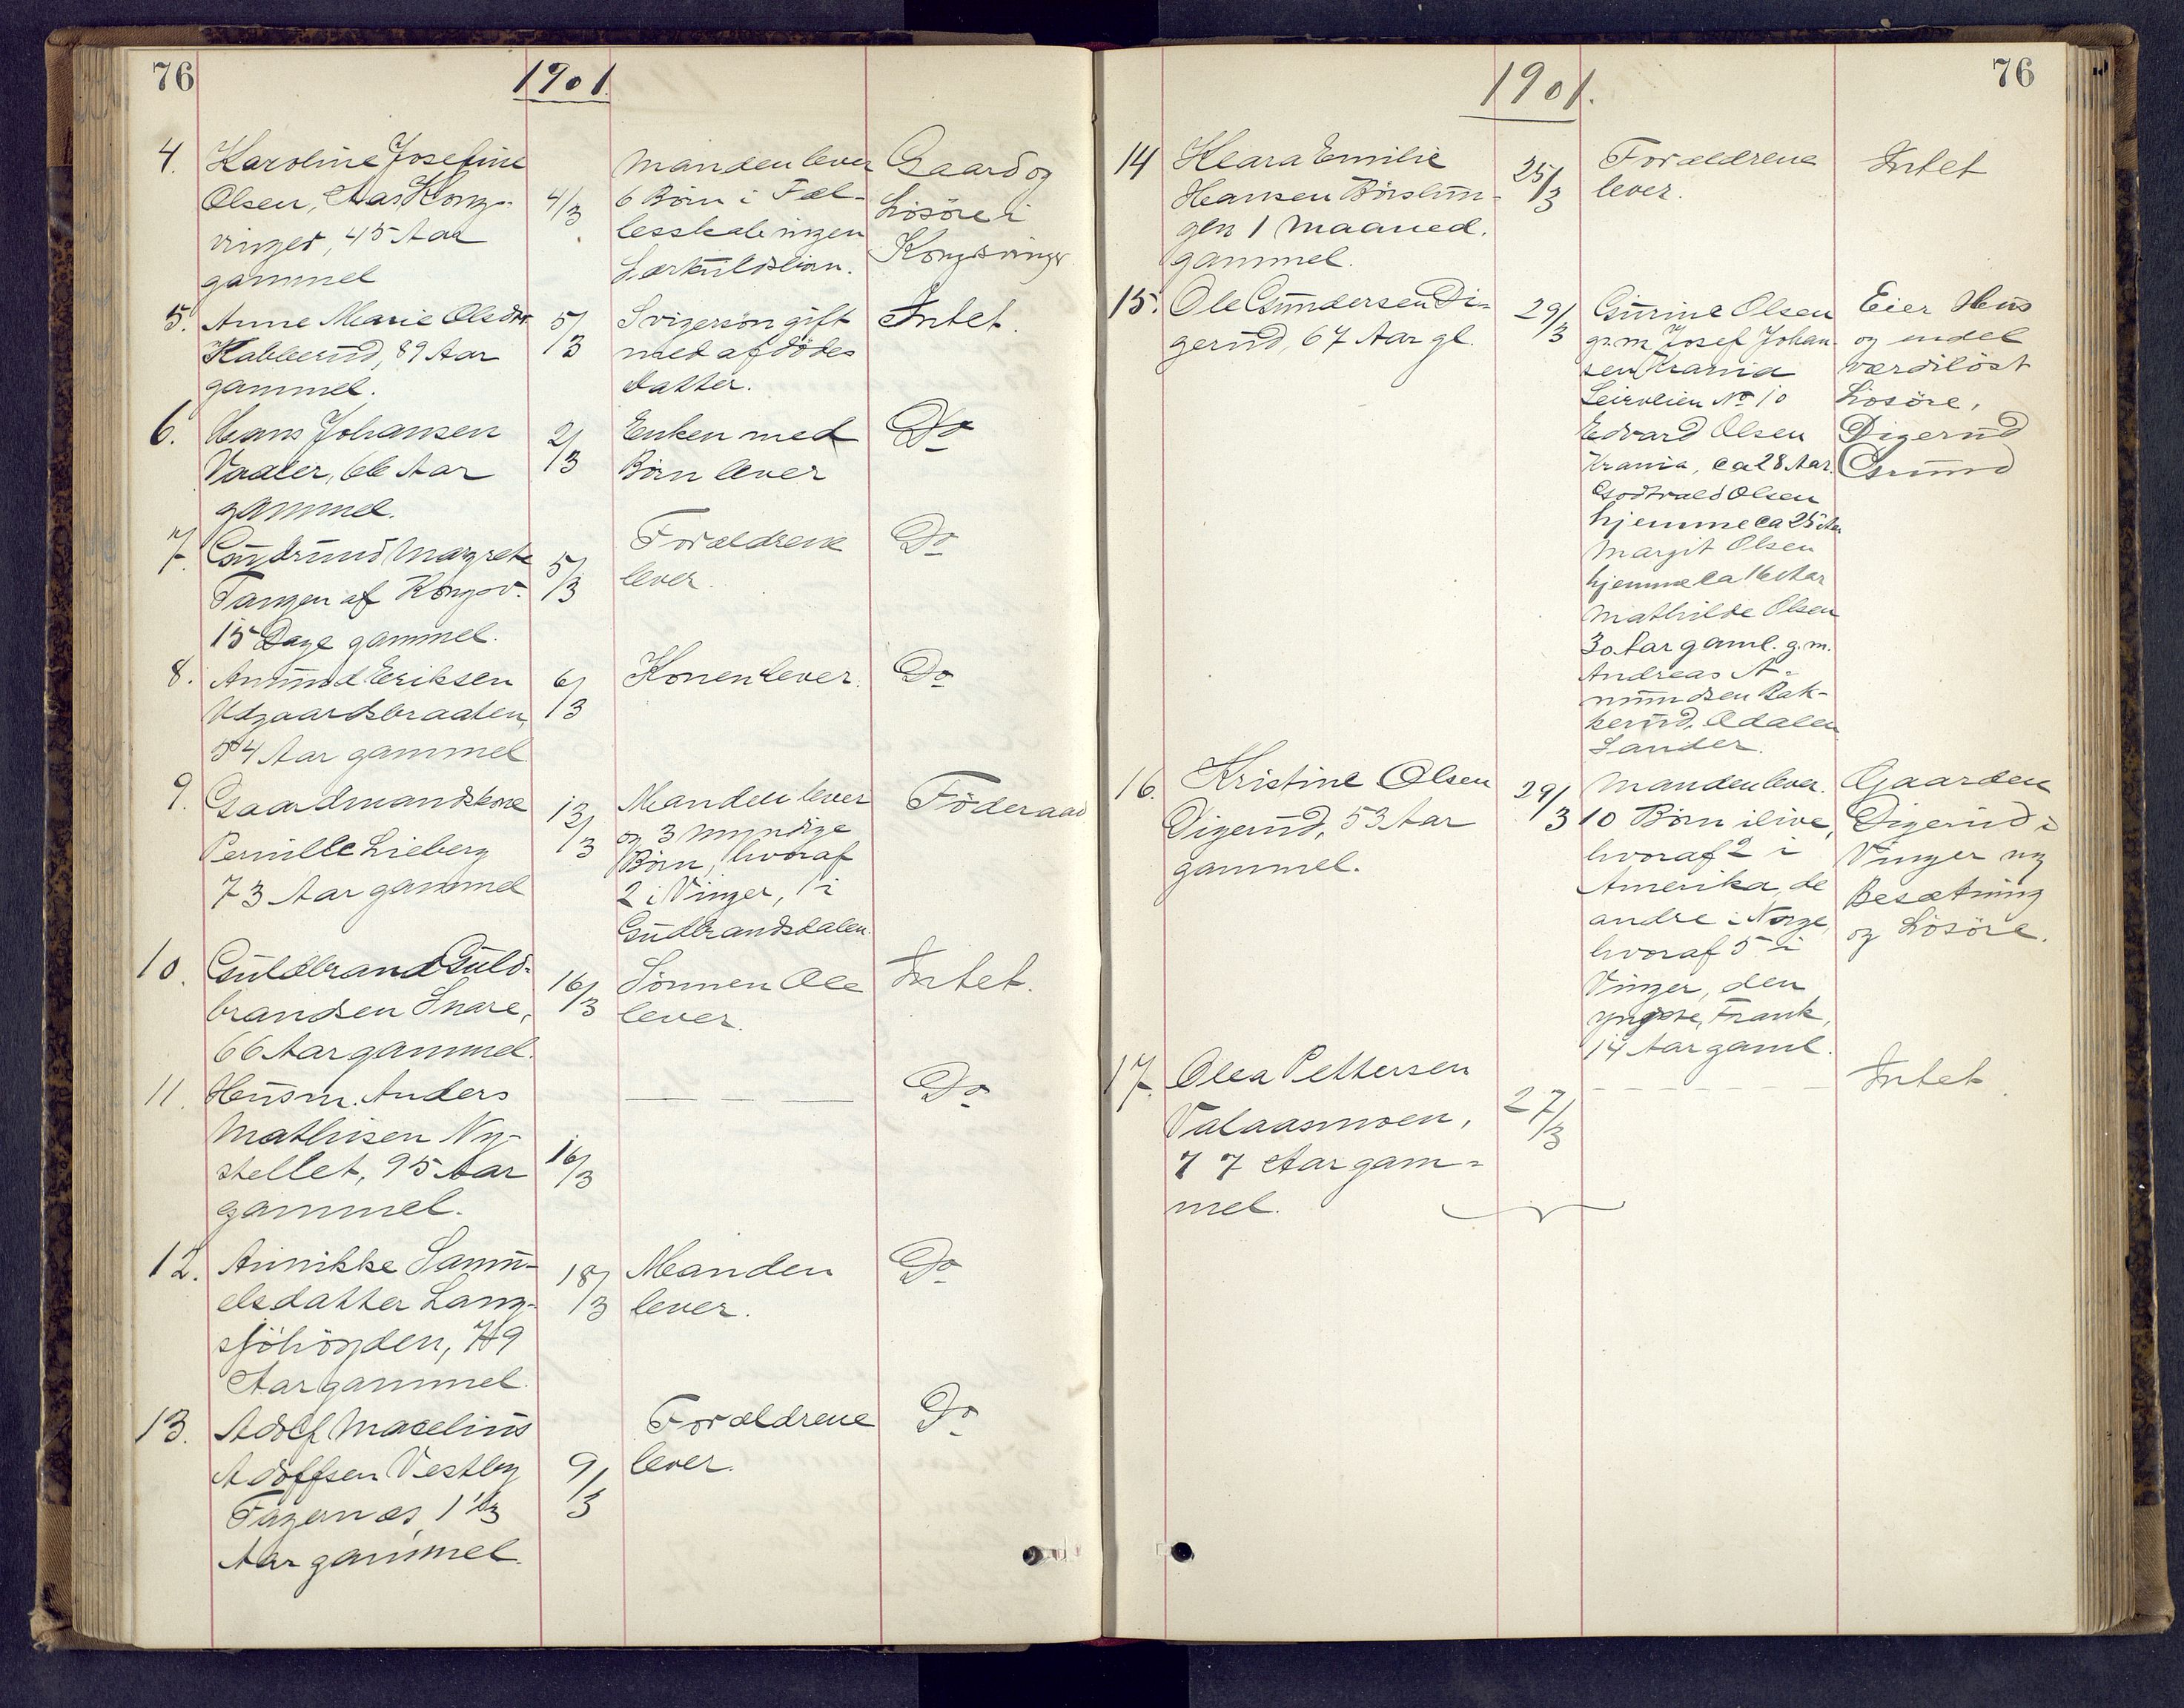 76
1901.
4. Karoline Josefine Olsen, Aas Kongs-
vinger, 45 Aar
gammel
4/3
Manden lever
6 Börn i Fæl-
lesskab ingen
Særkuldbörn.
Gaard og
Lösöre i
Kongsvinger
5. Anne Marie Olsdtr
Kableruud, 89 Aar
gammel.
5/3
Svigersön gift
med afdödes
datter.
Intet.
6. Hans Johansen
Vaaler, 66 Aar
gammel.
2/3
Enken med
Börn lever
Do
7. Gudrund Margrete
Tangen af Kongsv.
15 Dage gammel.
5/3
Forældrene
lever.
Do
8. Anund Eriksen
Udgaardsbraaten,
54 Aar gammel
6/3
Konen lever.
Do
9. Gaardmandskone
Pernille Lieberg
73 Aar gammel
12/3
Manden lever
og 3 myndige
Börn, hvoraf
2 i Vinger, 1 i
Gudbrandsdalen.
Föderaad
10. Guldbrand Guld-
brandsen Snare,
66 Aar gammel.
16/3
Sönnen Ole
lever.
Intet.
11. Husm. Anders
Mathisen Ny-
stellet, 95 Aar
gammel.
16/3
Do
12. Annikke Samu-
elsdatter Lang-
sjöhögden, 79
Aar gammel.
18/3
Manden
lever.
Do
13. Adolf Maselius
Adolfsen Vestby
Fagernæs, 1 1/3
Aar gammel.
9/3
Forældrene
lever.
Do
1901.
76
14 Klara Emilie
Hansen Börslun-
gen 1 Maaned.
gammel.
25/3
Forældrene
lever.
Intet
15. Ole Gundersen Di-
gerud, 67 Aar gl.
29/3
Gurine Olsen
g.m. Josef Johan
sen Krania
Leirveien No 10
Edvard Olsen
Krania, ca 28 Aar.
Godtvald Olsen
hjemme ca 25 Aar
Margit Olsen
hjemme ca 16 Aar
Mathilde Olsen
30 Aar gaml. g.m.
Andreas A-
mundsen Bak-
kerud, Odalen
Sander.
Eier Hus
og endel
værdilöst
Lösöre,
Digerud
Grund
16. Kristine Olsen
Digerud, 53 Aar
gammel.
29/3
Manden lever.
10 Börn ilive,
hvoraf 2 i
Amerika, de
andre i Norge,
hvoraf 5 i
Vinger, den
yngste, Frank,
14 Aar gaml.
Gaarden
Digerud i
Vinger og
Besætning
og Lösöre.
17. Olea Pettersen
Valaasmoen,
77 Aar gam-
mel.
27/3
Intet